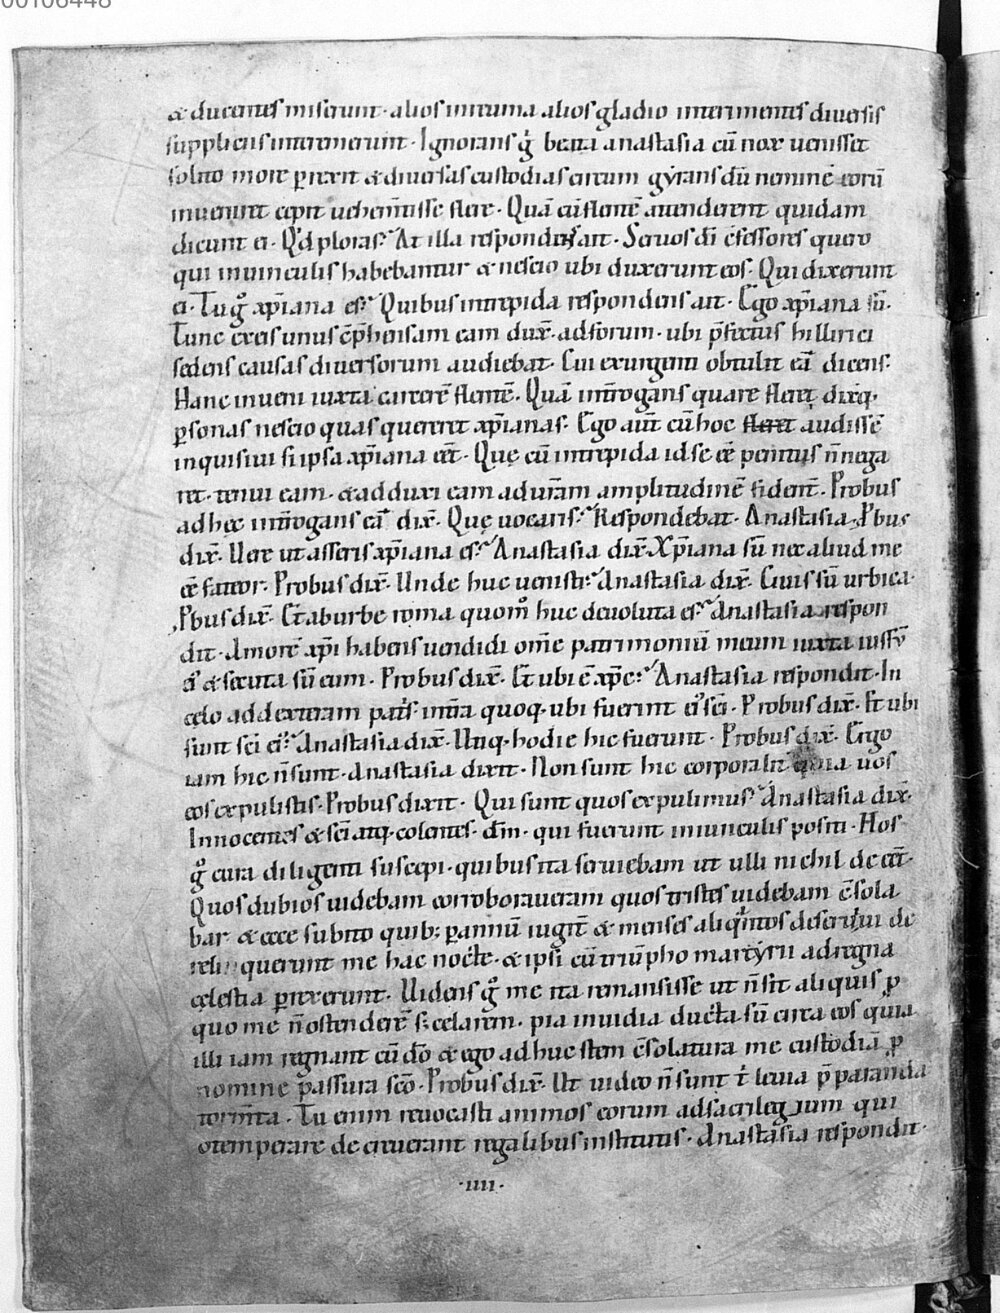 00106448
& ducentes miserunt· alios inruina alios gladio interimentes diuersis
suppliciis interemerunt· Ignorans g̊ beata anastasia cū nox uenisset
solito more p̱rexit & diuersas custodias circum gẏrans dū neminē eorū
inueniret cepit uehem̄tisse flere· Quā cū flentē attenderent quidam
dicunt ei· Q'd ploras? At illa respondens ait· Seruos dī c̄fessores quero
qui inuinculis habebantur & nescio ubi duxerunt eos· Qui dixerunt
ei· Tu g̊ xp̄iana es? Quibus intrepida respondens ait· Ego xp̄iana sū·
Tunc ex eis unus c̄p̄hensam eam dux̄· adforum· ubi p̄fectus hillirici
sedens causas diuersorum audiebat· Cui exurgenti obtulit eā dicens·
Hanc inueni iuxta carcerē flentē· Quā int̄rogans quare fleret dixitq·
p̱sonas nescio quas quereret xp̄ianas· Ego aut̄ cū hoc fleret audissē
inquisiui si ipsa xp̄iana eēt· Quę cū intrepida id se eē penitus n̄ nega
ret· tenui eam· & adduxi eam ad ur̄am amplitudinē fident̄· Probus
ad hęc int̄rogans eā dix̄· Quę uocaris? Respondebat· Anastasia· P̱bus
dix̄· Uere ut asseris xp̄iana es? Anastasia dix̄ Xp̄iana sū nec aliud me
eē fateor· Probus dix̄· Unde huc uenisti? Anastasia dix̄· Ciuis sū urbica·
P̱bus dix̄· Et ab urbe roma quom̊ huc deuoluta es? Anastasia respon
dit· Amorē xp̄i habens uendidi om̄e patrimoniū meum iuxta iussū
ei' & secuta sū eum· Probus dix̄· Et ubi ē xp̄c? Anastasia respondit· In
cęlo ad dexteram pat's· int̄ra quoq· ubi fuerint ei' sc̄i· Probus dix̄· Et ubi
sunt sc̄i ei'? Anastasia dix̄· Utiq· hodie hic fuerunt· Probus dix̄· Ergo
iam hic n̄ sunt· Anastasia dixit· Non sunt hic corporalit' quia uos
eos expulistis· Probus dixit· Qui sunt quos expulimus? Anastasia dix̄·
Innocentes & sc̄i atq· colentes· dm̄· qui fuerunt inuinculis positi· Hos
g̊ cura diligenti suscepi· quibus ita seruiebam ut ulli nichil deeēt·
Quos dubios uidebam corroboraueram quos tristes uidebam c̄sola
bar· & ecce subito quib; p̱ annū iugit̄ & menses aliq'ntos deseruiui de
reli querunt me hac nocte· & ipsi cū triūpho martẏrii ad regna
cęlestia p̱rexerunt· Uidens g̊ me ita remansisse ut n̄ sit aliquis p̱
quo me n̄ ostenderē s; celarem· pia inuidia ducta sū circa eos quia
illi iam regnant cū dō & ego adhuc stem c̄solatura me custodiā p̱
nomine passura sc̄o· Probus dix̄· Ut uideo n̄ sunt t' leuia p̄paranda
torm̄ta· Tu enim reuocasti animos eorum ad sacrilegium qui
otemperare decreuerant regalibus institutis· Anastasia respondit·
·IIII·